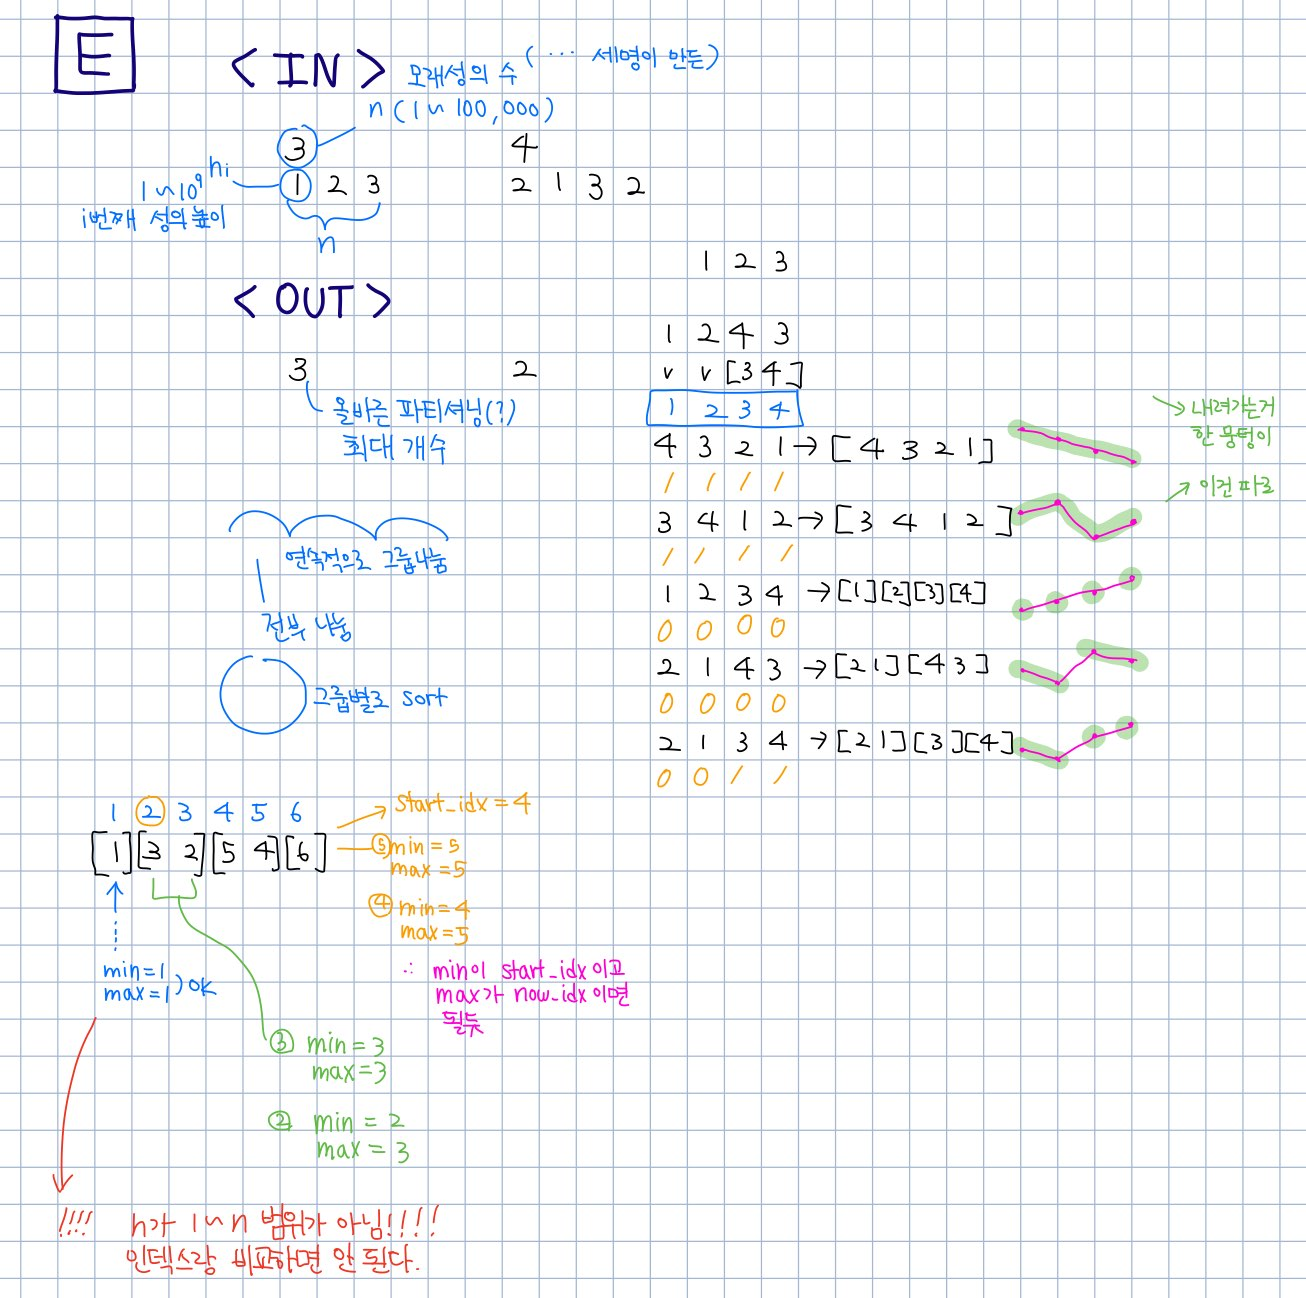 E
< IN >
( ... 세명이 만든)
모래성의 수
n ( 1 ~ 100,000)
3
4
hi
1 ~ 10⁹
1 2 3
2 1 3 2
i번째 성의 높이
n
1 2 3
< OUT >
1 2 4 3
3
2
v v [3 4]
올바른 파티셔닝(?)
최대 개수
1 2 3 4
→ 내려가는거
한 뭉텅이
4 3 2 1 → [ 4 3 2 1 ]
/ / / /
→ 이건 따로
3 4 1 2 → [ 3 4 1 2 ]
/ / / /
연속적으로 그룹나눔
1 2 3 4 → [1][2][3][4]
전부 나눔
0 0 0 0
2 1 4 3 → [2 1] [4 3]
그룹별로 sort
0 0 0 0
2 1 3 4 → [2 1][3][4]
0 0 / /
1 2 3 4 5 6
[1][3 2][5 4][6]
start_idx = 4
⑤ min = 5
max = 5
④ min = 4
max = 5
min=1
max=1 ) OK
∴ min이 start_idx 이고
max가 now_idx 이면
될듯
③ min = 3
max = 3
② min = 2
max = 3
!!!! h가 1 ~ n 범위가 아님!!!!
인덱스랑 비교하면 안 된다.